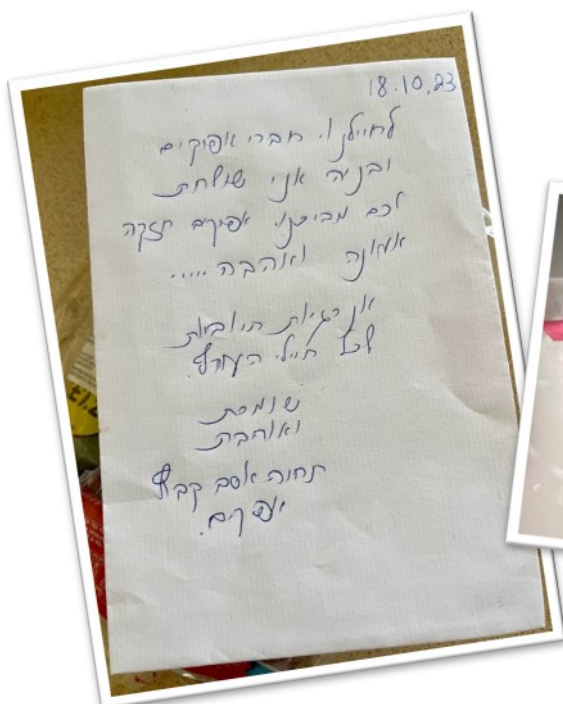 18.10.23
לחיילנו. חברי אפיקים
ובניה אני שולחת
לכם מביתנו. אפיקים חזקה
אמונה ואהבה.....
אנרגיות חיוביות
לכל חיילי העורף.
שומרת
ואוהבת
תחיה אסם קבוץ
אפיקים.